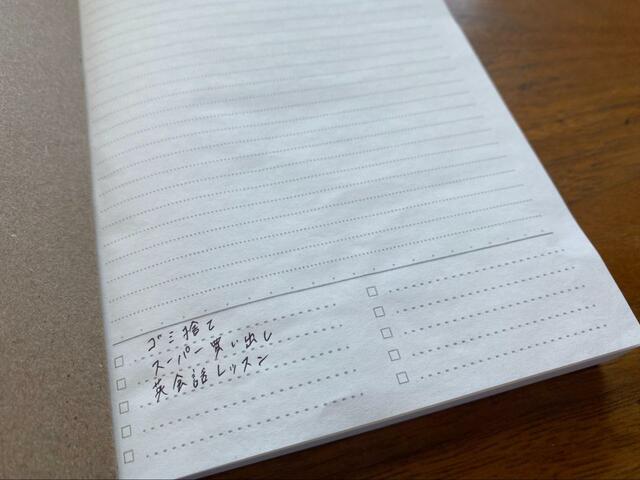 ゴミ捨て
スーパー買い出し
英会話レッスン